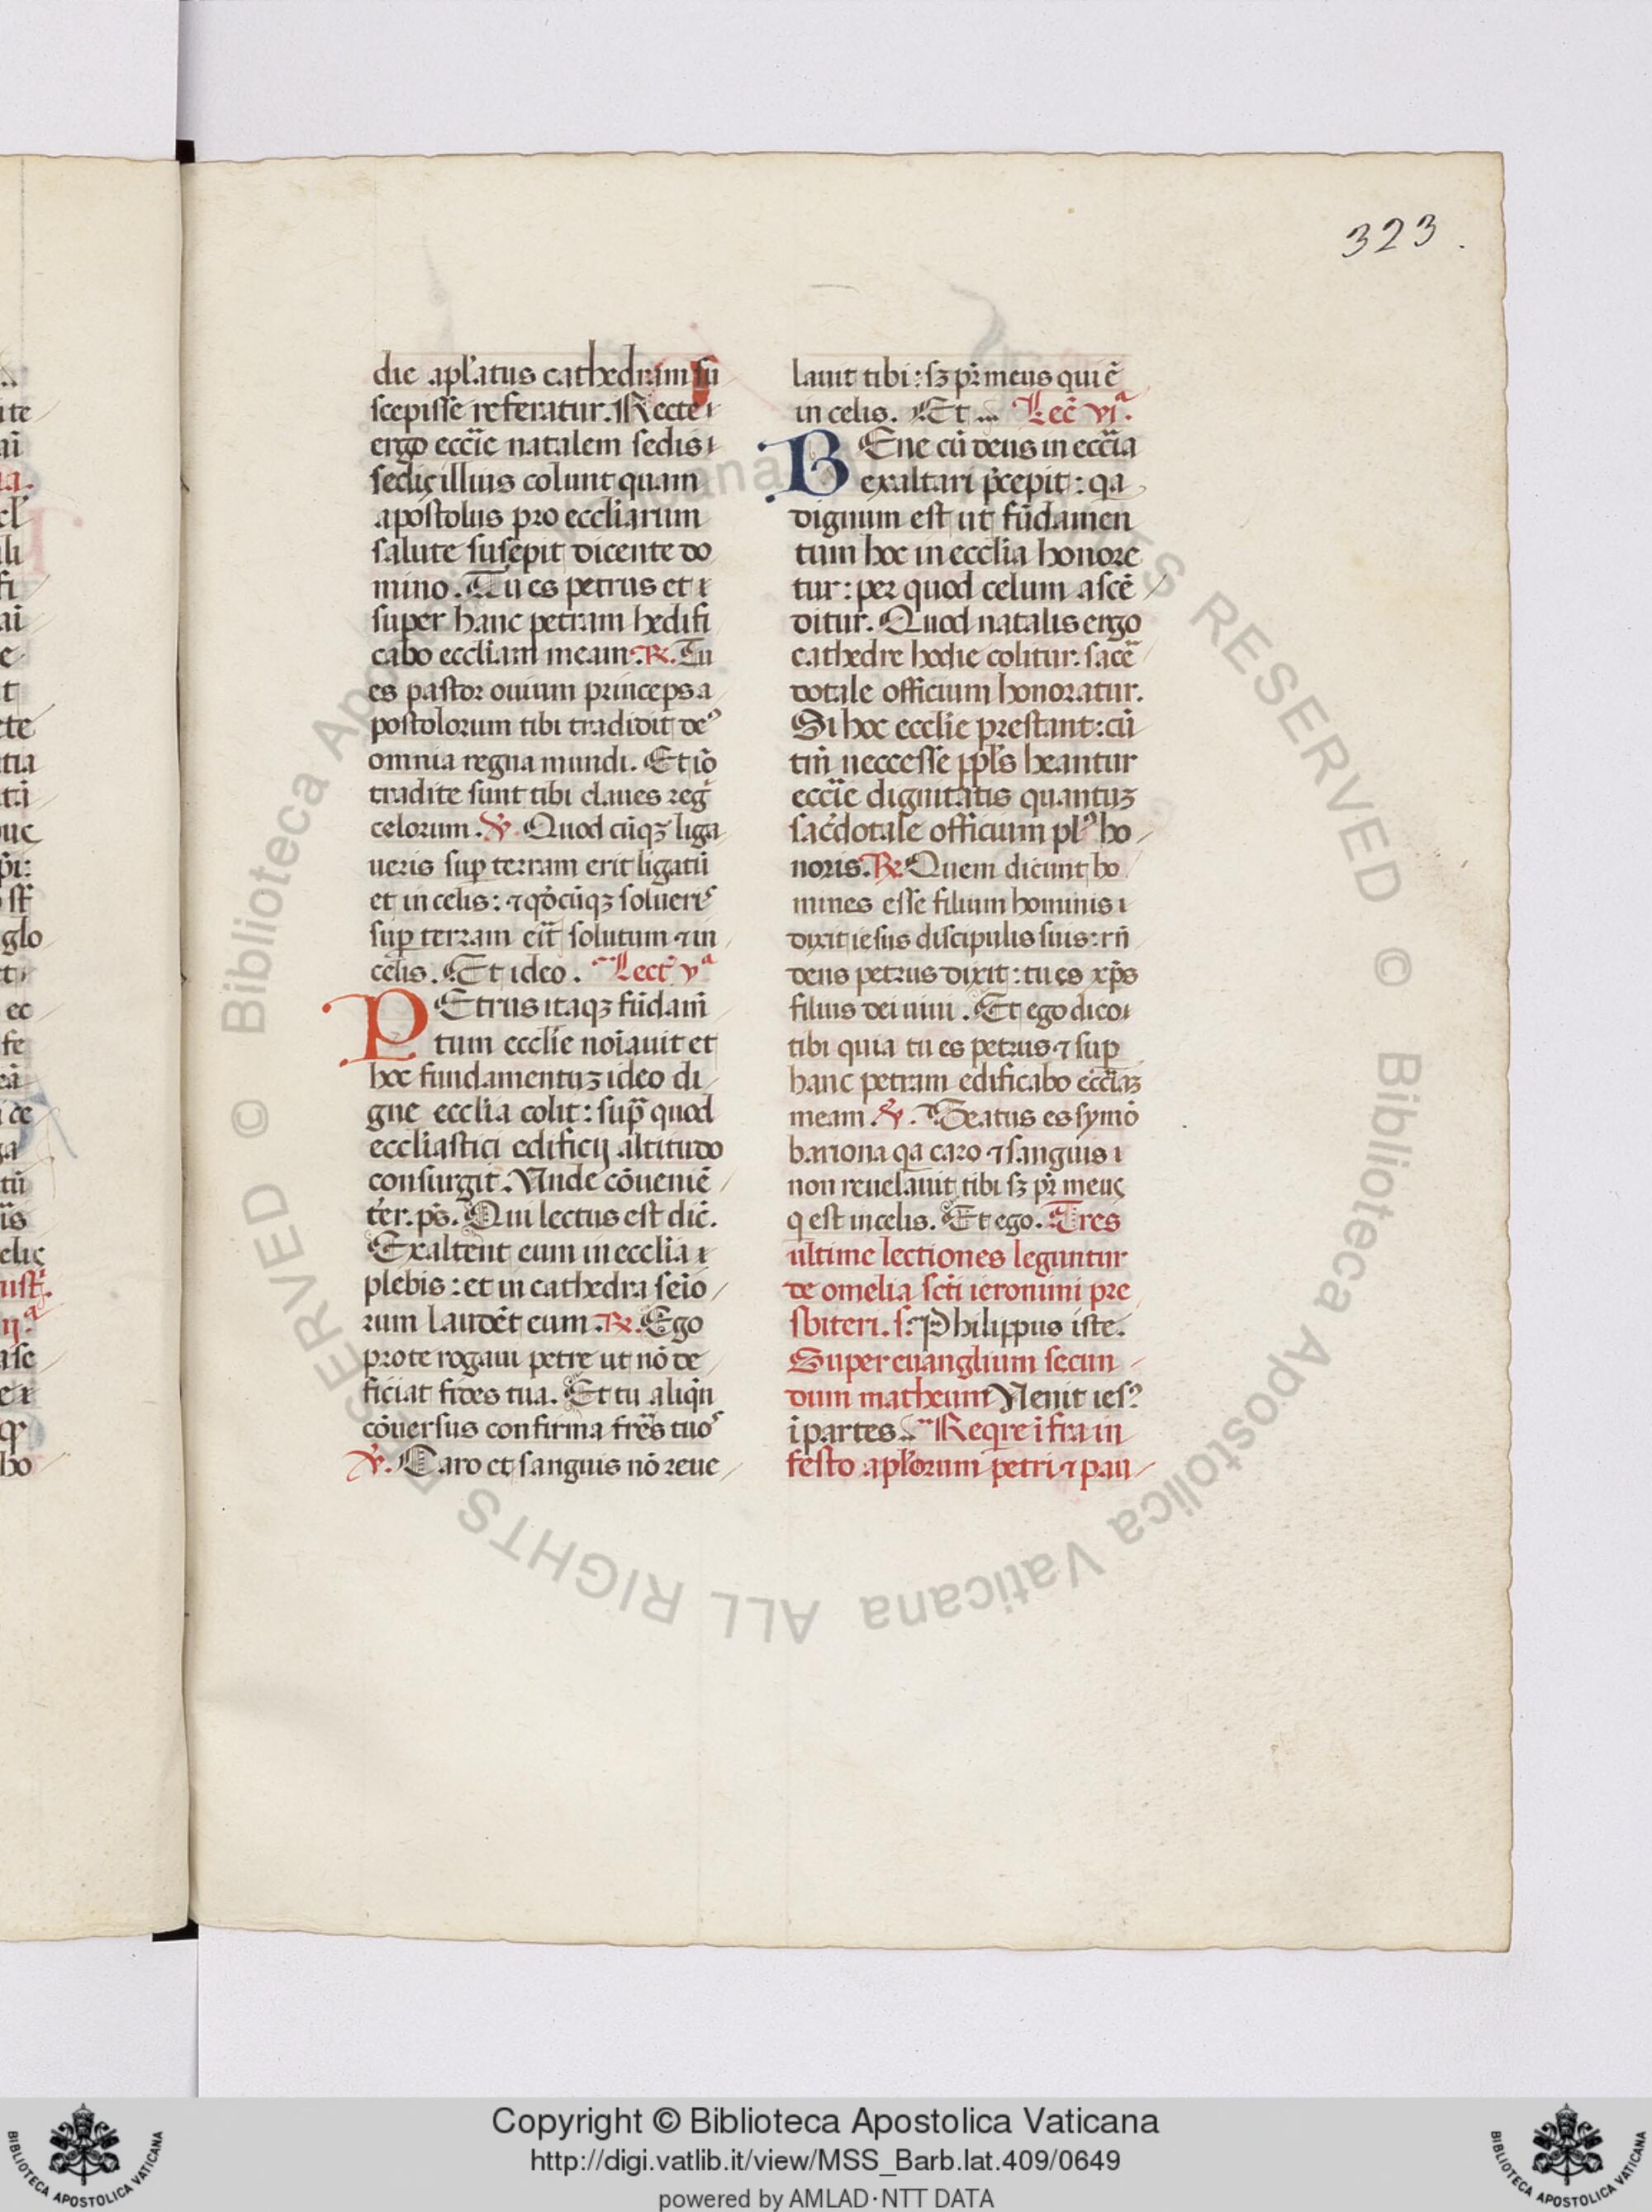 323.
die apl'atus cathedram su
scepisse referatur. Recte
ergo eccl̄ie natalem sedis
sedis illius colunt quam
apostolus pro eccl̄iarum
salute susepit dicente do
mino. Tu es petrus et
super hanc petram hedifi
cabo eccl̄iam meam. ℟. Tu
es pastor ouium princeps a
postolorum tibi tradidit deꝰ
omnia regna mundi. Et iō
tradite sunt tibi claues reḡ
celorum. ℣. Quodcūqꝫ liga
ueris sup̱ terram erit ligatū
et in celis: ⁊ qōcūqꝫ solueris
sup̱ terram erit solutum ⁊ in
celis. Et ideo. Lect̄ vᵃ
PEtrus itaqꝫ fūdam̄
tum eccl̄ie noīauit et
hoc fundamentuꝫ ideo di
gne eccl̄ia colit: sup̄ quod
eccl̄iastici edificij altitudo
consurgit. Unde cōueniē
ter. ps̄. Qui lectus est dic̄.
Exaltent eum in eccl̄ia
plebis: et in cathedra seīo
rum laudēt eum. ℟. Ego
pro te rogaui petre ut nō de
ficiat fides tua. Et tu aliqn̄
cōuersus confirma fr̄es tuos
℣. Caro et sanguis nō reue
lauit tibi: sꝫ pr̄ meus qui ē
in celis. Et... Lec̄ vjᵃ.
BEne cū deus in eccl̄ia
exaltari p̄cepit: qa
dignum est ut fūdamen
tum hoc in eccl̄ia honore
tur: per quod celum ascē
ditur. Quod natalis ergo
cathedre hodie colitur. sac̄e
dotale officium honoratur.
Si hoc eccl̄ie prestant: cū
tm̄ neccesse ppl̄s heantur
eccl̄ie dignitatis quantuꝫ
sac̄dotale officium plꝰ ho
noris. ℟. Quem dicunt ho
mines esse filium hominis
dixit iesus discipulis suis: rn̄
dens petrus dixit: tu es xp̄s
filius dei uiui. Et ego dico
tibi quia tu es petrus ⁊ sup̱
hanc petram edificabo eccl̄iaꝫ
meam. ℣. Beatus es symō
bariona qa caro ⁊ sanguis
non reuelauit tibi sꝫ pr̄ meus
q est in celis. Et ego. Tres
ultime lectiones leguntur
de omelia sc̄ti ieronimi pre
sbiteri. s. Philippus iste.
Super euanglium secun
dum matheum Uenit iesꝰ
ī partes... Reqre īfra in
festo apl'orum petri ⁊ pau
Copyright © Biblioteca Apostolica Vaticana
http://digi.vatlib.it/view/MSS_Barb.lat.409/0649
powered by AMLAD·NTT DATA
BIBLIOTECA APOSTOLICA VATICANA
BIBLIOTECA APOSTOLICA VATICANA
© Biblioteca Apostolica Vaticana ALL RIGHTS RESERVED © Biblioteca Apostolica Vaticana ALL RIGHTS RESERVED